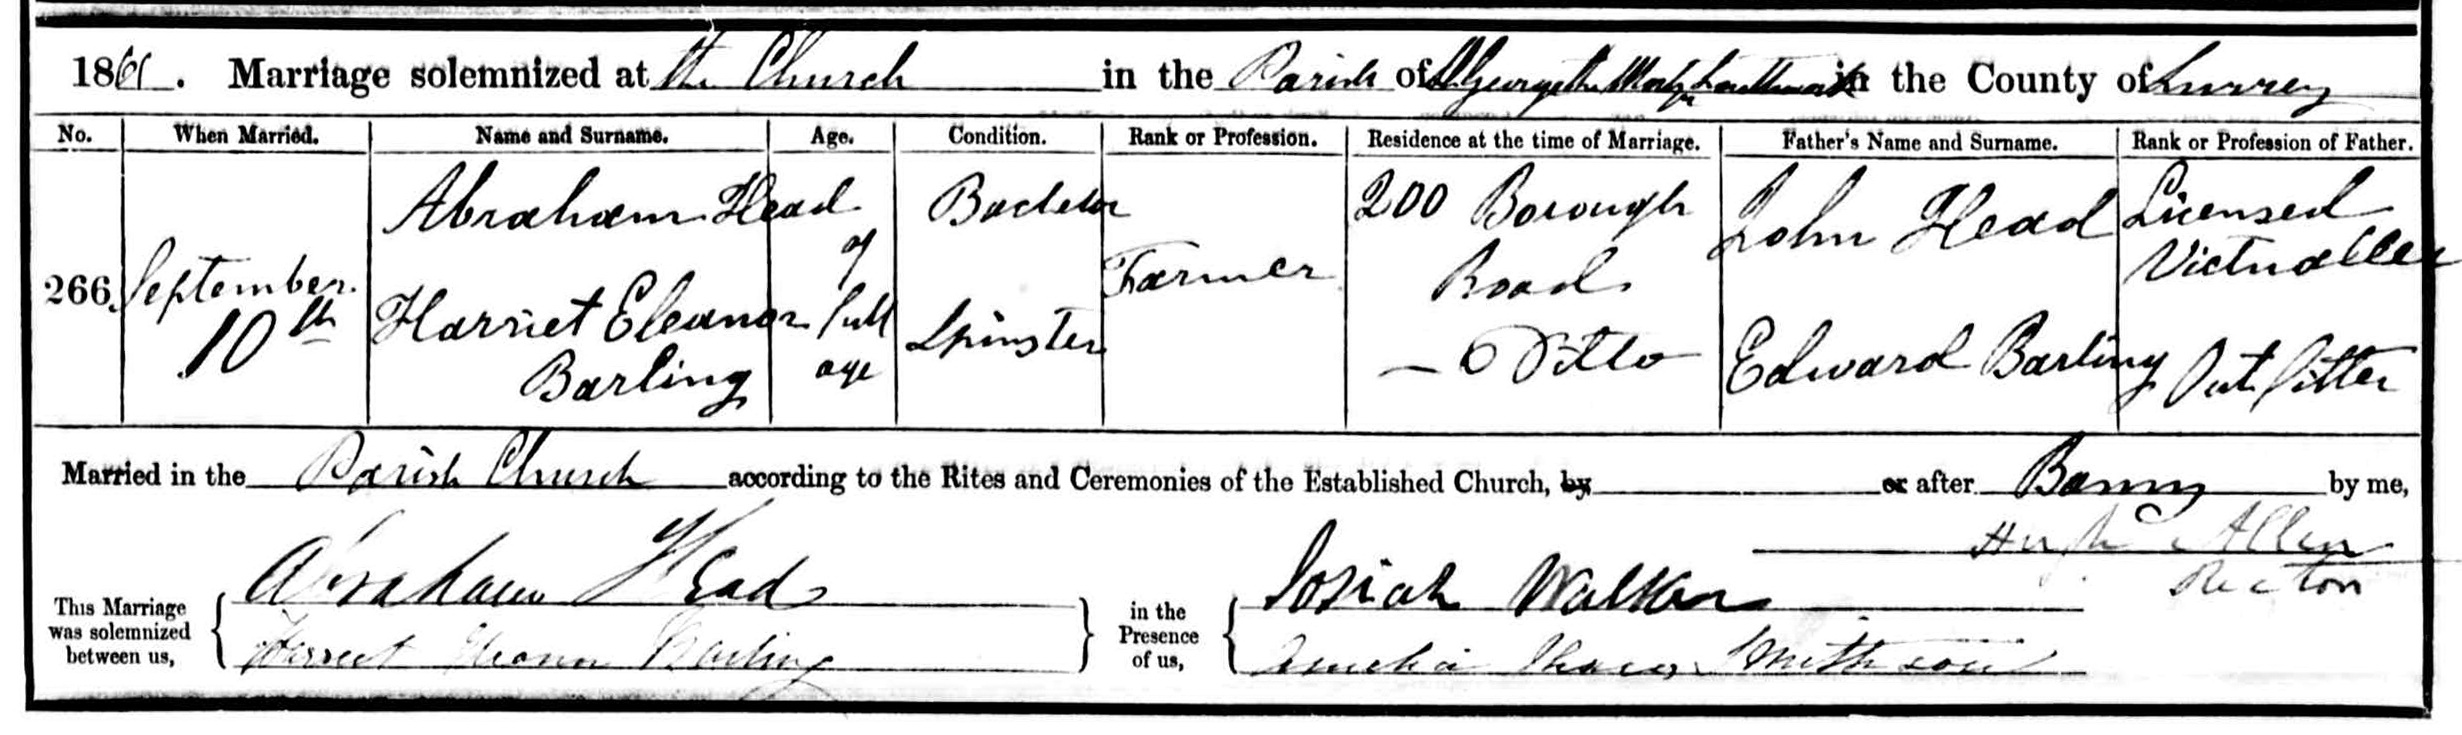 1861. Marriage solemnized at the Church in the Parish of St George the Martyr Southwark in the County of Surrey
No. When Married. Name and Surname. Age. Condition. Rank or Profession. Residence at the time of Marriage. Father's Name and Surname. Rank or Profession of Father.
266. September 10th
Abraham Head
Harriet Eleanor
Barling
of
full
age
Bachelor
Spinster
Farmer
200 Borough
Road
– Ditto
John Head
Edward Barling
Licensed
Victualler
Outfitter
Married in the Parish Church according to the Rites and Ceremonies of the Established Church, by or after Banns by me,
Hugh Allen
Rector
This Marriage
was solemnized
between us,
Abraham Head
Harriet Eleanor Barling
in the
Presence
of us,
Josiah Walker
Amelia Smithson